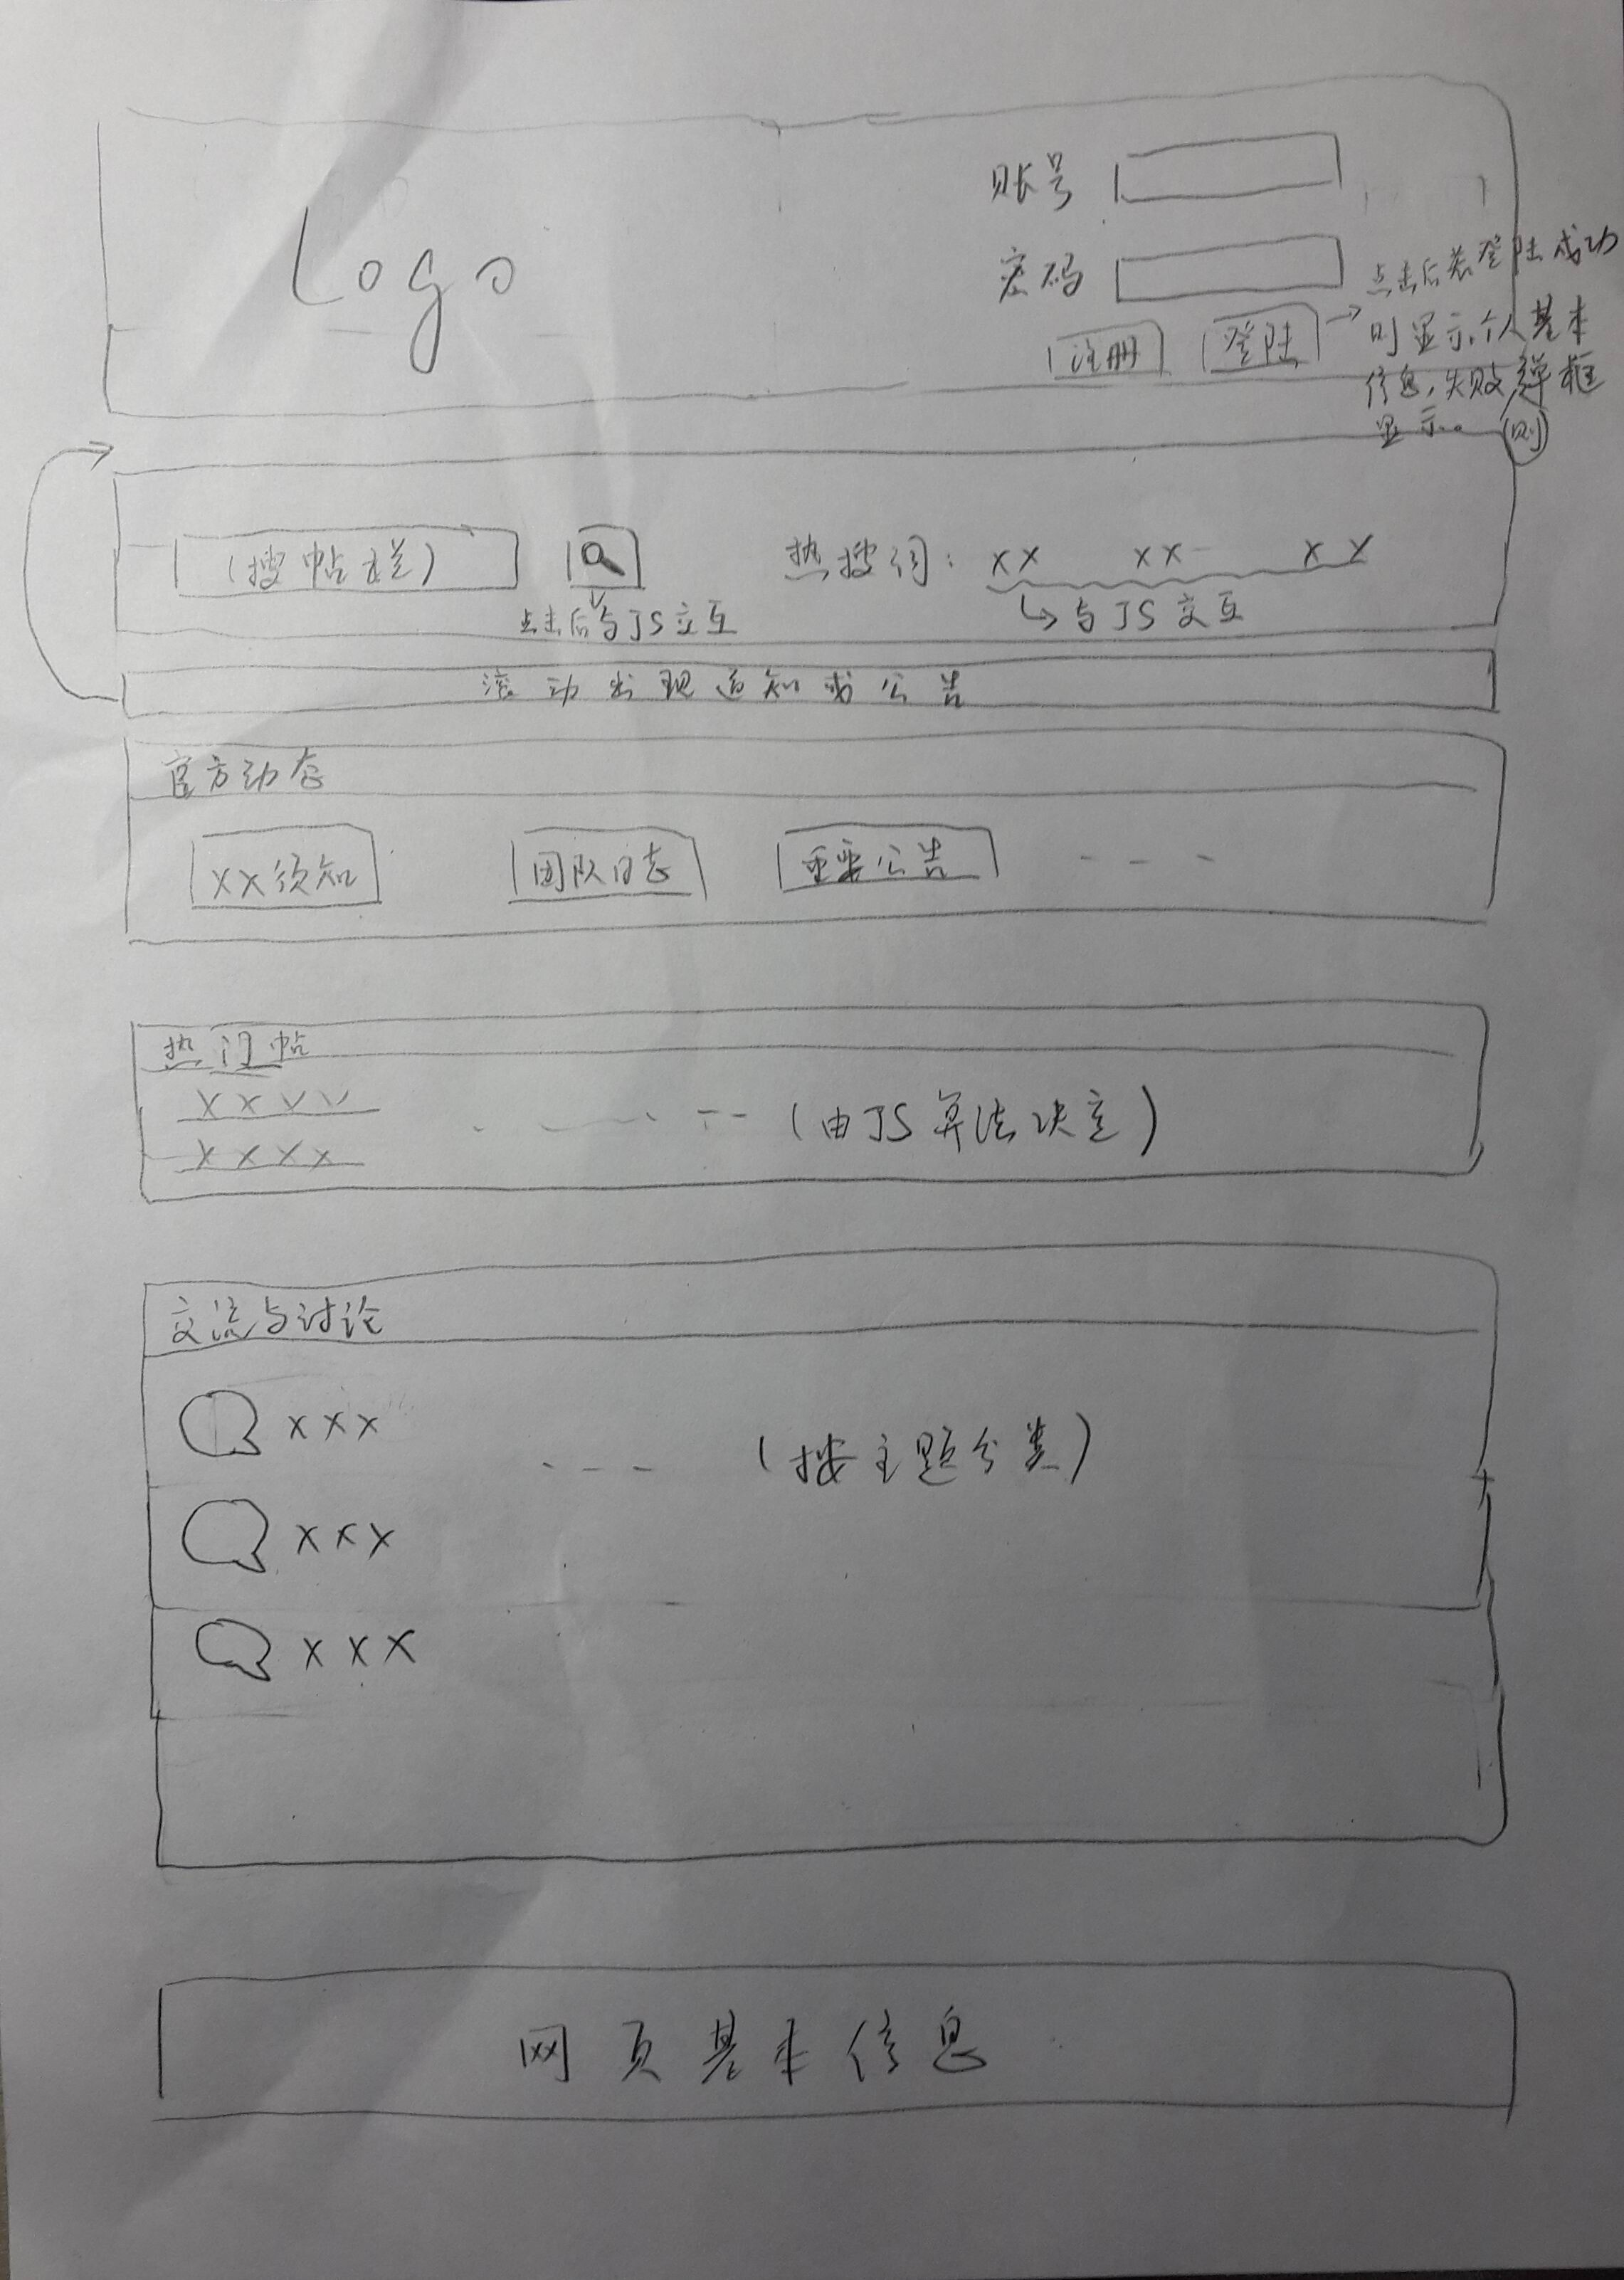 Logo
账号
密码
注册 登陆
点击后若登陆成功
则显示个人基本
信息,失败弹框
显示。 则
(搜帖栏)
点击后与JS交互
热搜词: XX XX XX
与JS交互
滚动出现通知或公告
官方动态
XX须知 团队日志 重要公告
热门帖
XXXX
XXXX
(由JS算法决定)
交流与讨论
XXX
(按主题分类)
XXX
XXX
网页基本信息